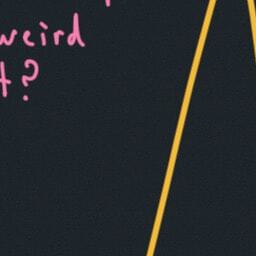 weird
t?